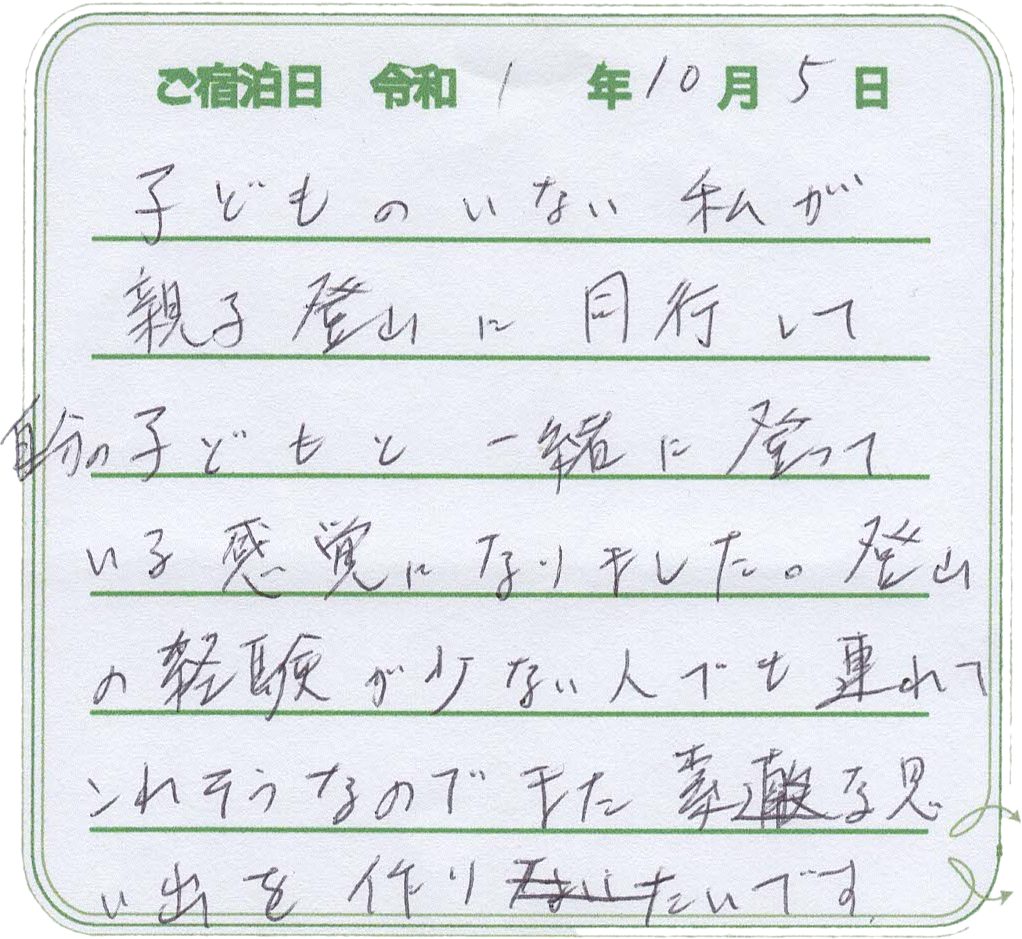 ご宿泊日 令和1年10月5日
子どものいない私が
親子登山に同行して
自分の子どもと一緒に登って
いる感覚になりました。登山
の経験が少ない人でも連れて
これそうなのでまた素敵な思
い出を作りたいです。